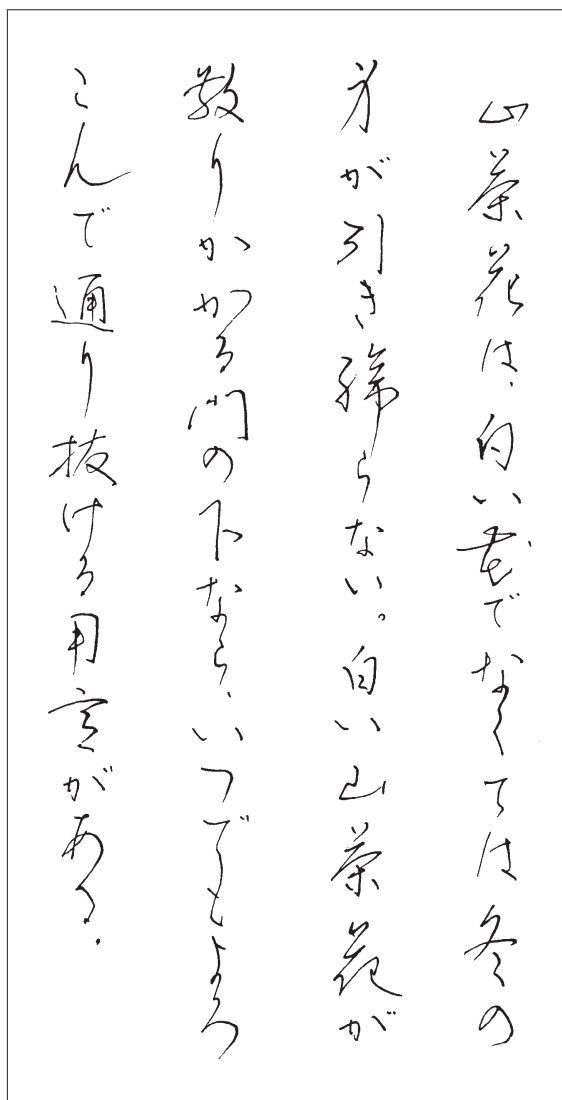 山茶花は、白い花でなくては冬の
身が引き締らない。白い山茶花が
散りかかる門の下なら、いつでもよろ
こんで通り抜ける用意がある。